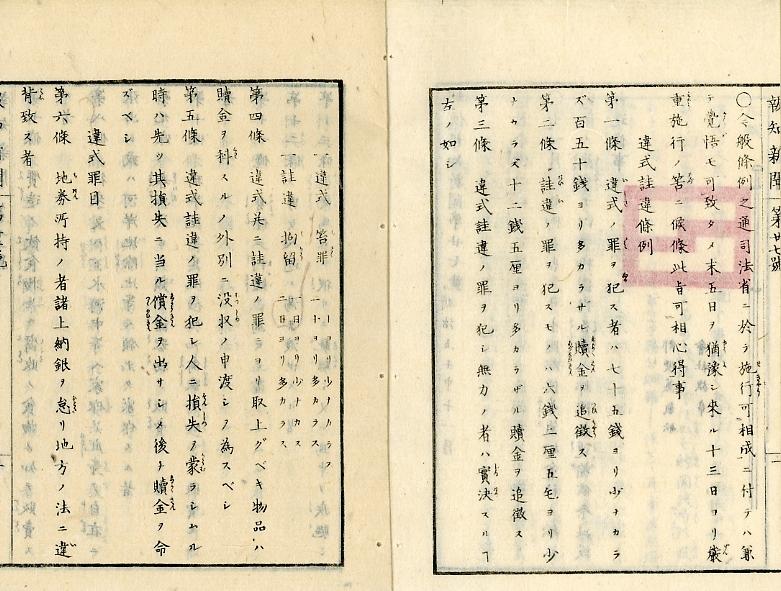 報知新聞 第廿七號
〇今般條例之通司法省ニ於テ施行可相成ニ付テハ兼
テ覺悟モ可致タメ来五日ヲ猶豫シ來ル十三日ヨリ嚴
重施行ノ筈ニ候條此旨可相心得事
違式詿違條例
第一條 違式ノ罪ヲ犯ス者ハ七十五錢ヨリ少ナカラ
ズ百五十錢ヨリ多カラザル贖金ヲ追徴ス
第二條 詿違ノ罪ヲ犯スモノハ六錢二厘五毛ヨリ少
ナカラズ十二錢五厘ヨリ多カラザル贖金ヲ追徴ス
第三條 違式詿違ノ罪ヲ犯シ無力ノ者ハ實決スルヿ
左ノ如シ
一違式 笞罪 一十ヨリ少ナカラス
二十ヨリ多カラス
一詿違 拘留 一日ヨリ少ナカラス
二日ヨリ多カラス
第四條 違式并ニ詿違ノ罪ニヨリ取上グベキ物品ハ
贖金ヲ科スルノ外別ニ没収ノ申渡シヲ為スベシ
第五條 違式詿違ノ罪ヲ犯シ人ニ損失ヲ蒙ラシムル
時ハ先ツ其損失ニ当ル償金ヲ出サシメ後チ贖金ヲ命
ズベシ
違式罪目
第六條 地券所持ノ者諸上納銀ヲ怠リ地方ノ法ニ違
背致ス者